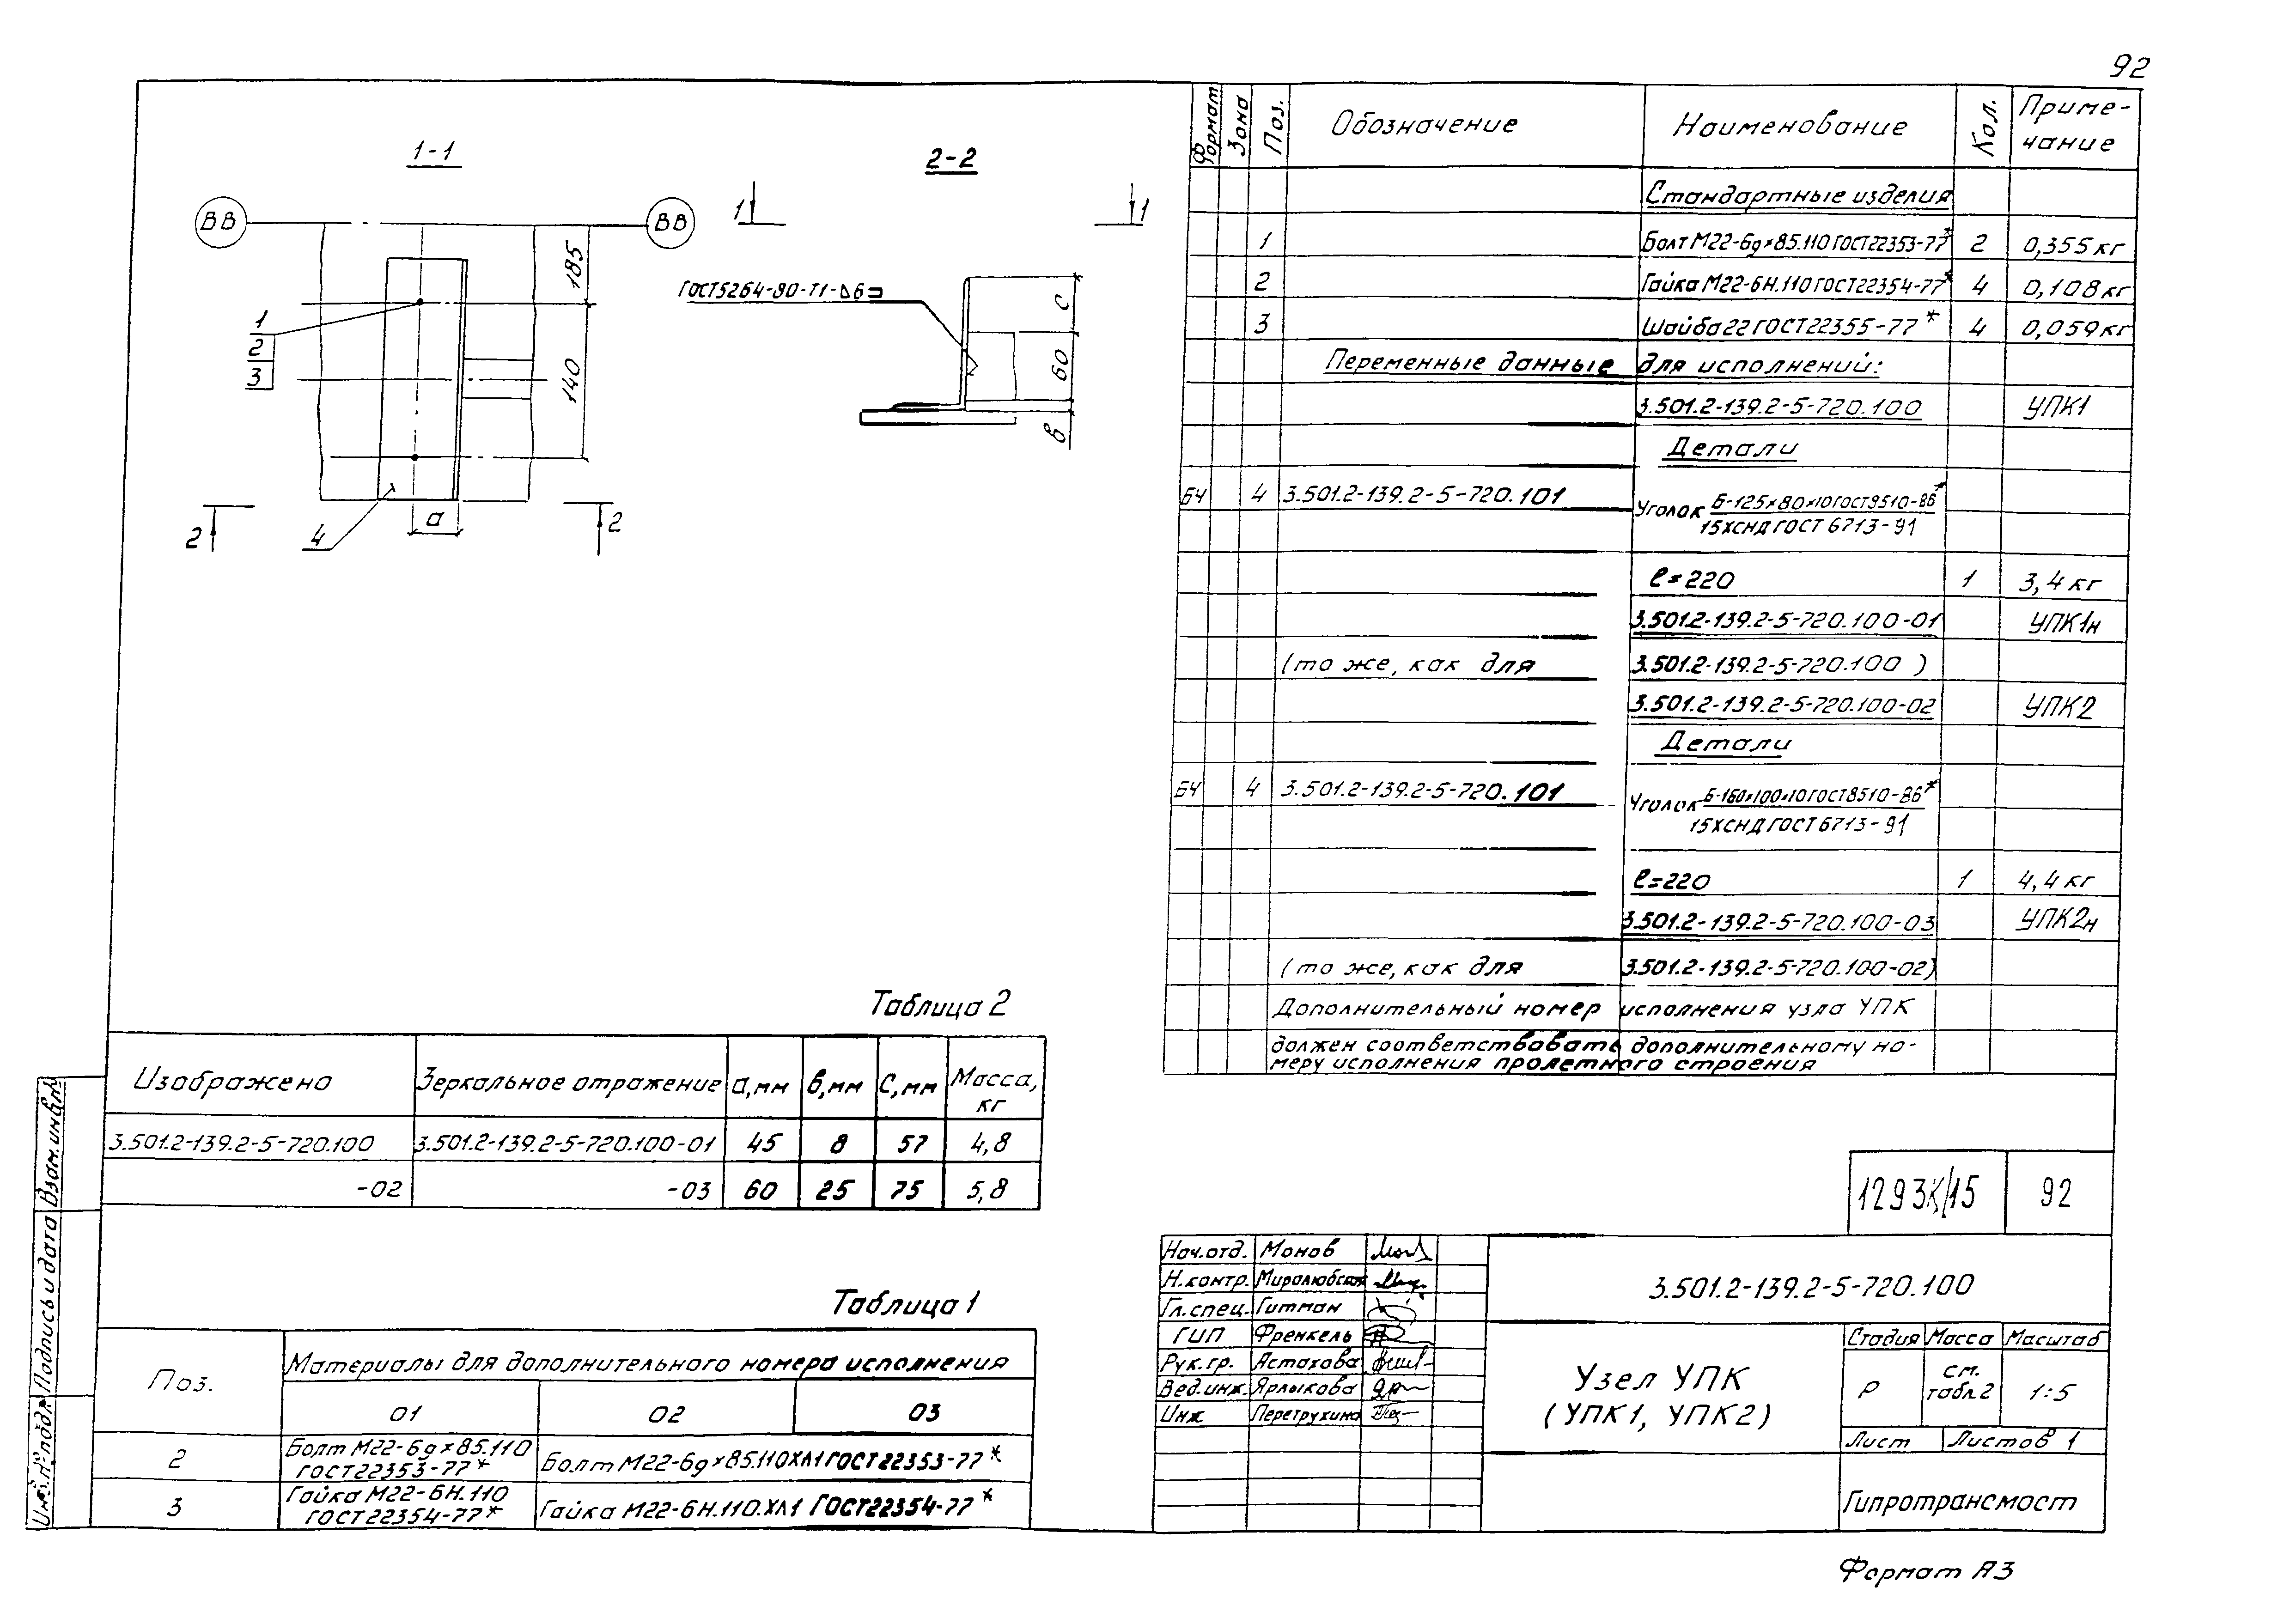 92
1-1
ВВ
ВВ
185
140
1
2
3
4
а
2
2
2-2
1
1
ГОСТ5264-80-Т1-⊿6
с
60
в
Формат
Зона
Поз.
Обозначение
Наименование
Кол.
Приме-
чание
Стандартные изделия
1 Болт М22-6g×85.110 ГОСТ22353-77* 2 0,355кг
2 Гайка М22-6Н.110ГОСТ22354-77* 4 0,108кг
3 Шайба22ГОСТ22355-77* 4 0,059кг
Переменные данные для исполнений:
3.501.2-139.2-5-720.100 УПК1
Детали
БЧ 4 3.501.2-139.2-5-720.101 Уголок Б-125×80×10ГОСТ8510-86*
15ХСНД ГОСТ 6713-91
ℓ=220 1 3,4кг
3.501.2-139.2-5-720.100-01 УПК1н
(то же, как для 3.501.2-139.2-5-720.100 )
3.501.2-139.2-5-720.100-02 УПК2
Детали
БЧ 4 3.501.2-139.2-5-720.101 Уголок Б-160×100×10ГОСТ8510-86*
15ХСНД ГОСТ6713-91
ℓ=220 1 4,4кг
3.501.2-139.2-5-720.100-03 УПК2н
(то же, как для 3.501.2-139.2-5-720.100-02)
Дополнительный номер исполнения узла УПК
должен соответствовать дополнительному но-
меру исполнения пролетного строения
Таблица 2
Изображено Зеркальное отражение а,мм в,мм С,мм Масса,
кг
3.501.2-139.2-5-720.100 3.501.2-139.2-5-720.100-01 45 8 57 4,8
-02 -03 60 25 75 5,8
Таблица 1
Поз. Материалы для дополнительного номера исполнения
01 02 03
2 Болт М22-6g×85.110
ГОСТ22353-77* Болт М22-6g×85.110ХЛ1ГОСТ22353-77*
3 Гайка М22-6Н.110
ГОСТ22354-77* Гайка М22-6Н.110.ХЛ1 ГОСТ22354-77*
Взам.инв.№
Подпись и дата
Инв.№подл.
1293К/15 92
Нач.отд. Монов
Н.контр. Миролюбская
Гл.спец. Гитман
ГИП Френкель
Рук.гр. Астахова
Вед.инж. Ярлыкова
Инж Перетрухина
3.501.2-139.2-5-720.100
Узел УПК
(УПК1, УПК2)
Стадия Масса Масштаб
Р см.
табл.2 1:5
Лист Листов 1
Гипротрансмост
Формат А3